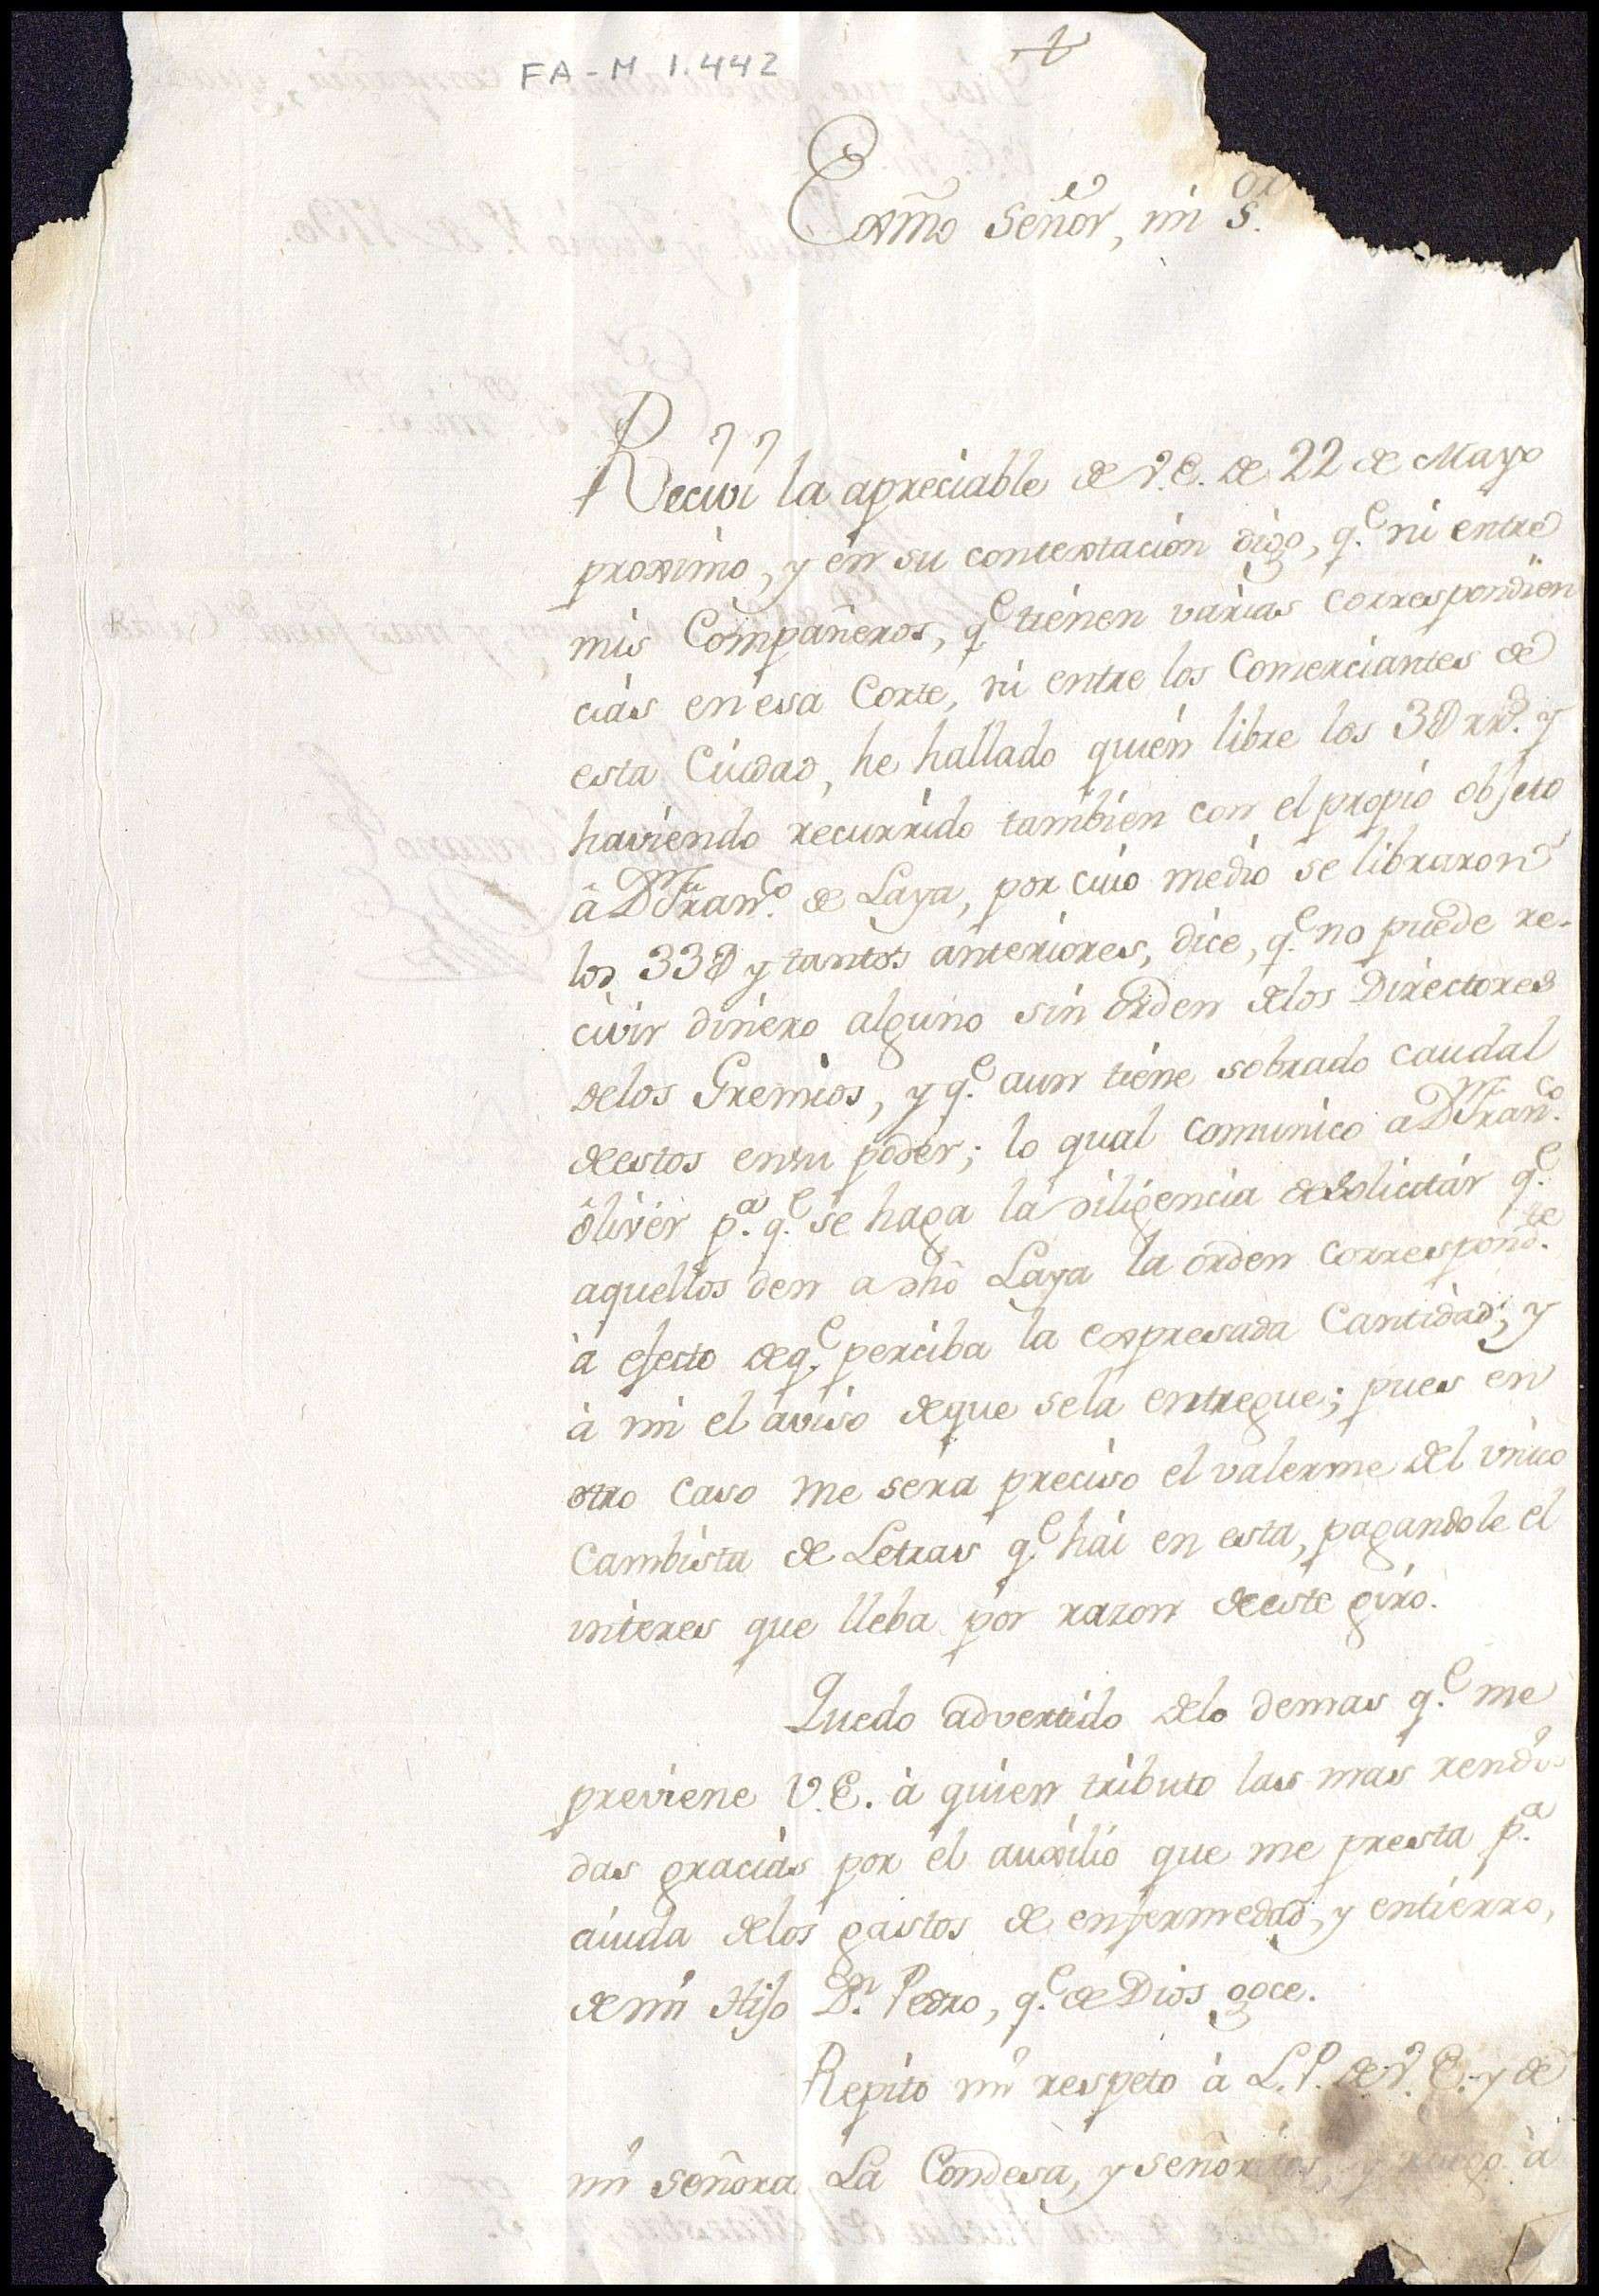 FA-M 1.442
Exmo Señor, mi S.or
Recivi la apreciable de V.E. de 22 de Mayo
proximo, y en su contextacion digo, q.e ni entre
mis Compañeros, q.e tienen varias correspondien
cias en esa Corte, ni entre los Comerciantes de
esta Ciudad, he hallado quien libre los 3D rr.s y
haviendo recurrido tambien con el propio objeto
â D.n Fran.co de Laya, por cuio medio se libraron
los 33D y tantos anteriores, dice, q.e no puede re-
civir dinero alguno sin orden delos Directores
delos Gremios, y q.e aun tiene sobrado caudal
deestos ensu poder; lo qual comunico a D.n Fran.co
ôliver p.a q.e se haga la diligencia desolicitar q.e
aquellos den a dho Laya la orden correspond.te
à efecto deq.e perciba la expresada Cantidad; y
à mi el aviso deque sela entregue; pues en
otro caso me sera preciso el valerme del unico
Cambista de Letras q.e hai en esta, pagandole el
interes que lleba por razon deeste giro.
Quedo advertido delo demas q.e me
previene V.E. à quien tributo las mas rendi-
das gracias por el auxilio que me presta p.a
aiuda delos gastos de enfermedad, y entierro,
demi Hijo D.n Pedro, q.e de Dios goce.
Repito mi respeto à L.P. de V.E. y de
mi señora La Condesa, y señoritos y ruego à